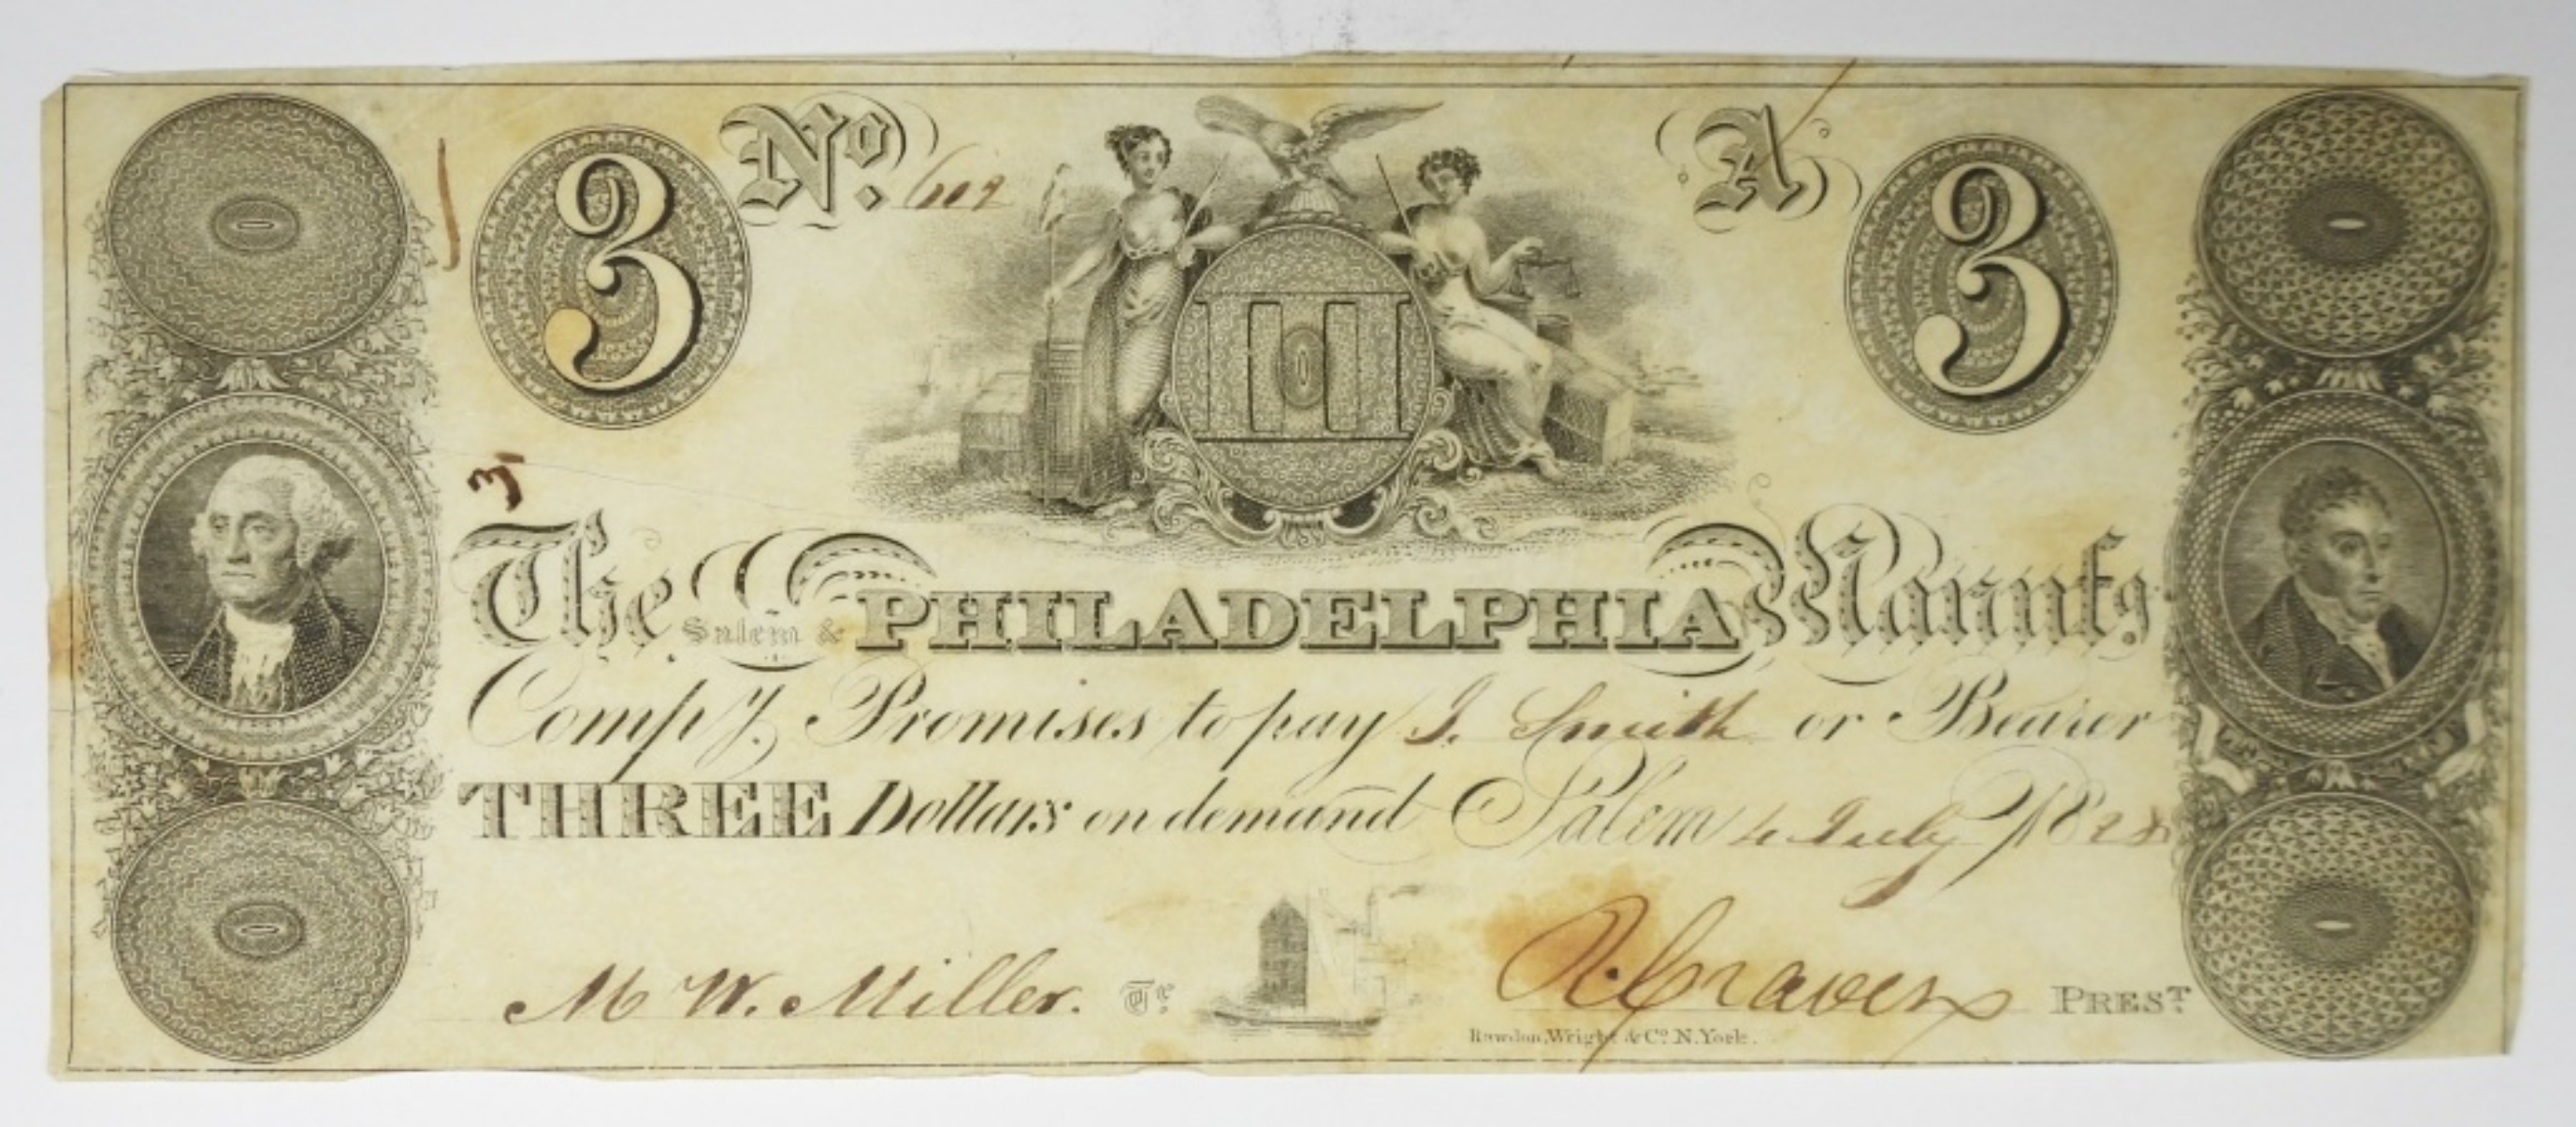 3 No. A 3
III
3
The Salem & PHILADELPHIA Manufg.
Compy. Promises to pay J. Smith or Bearer
THREE Dollars on demand Salem 4 July 1828
M W. Miller. Tr. R Craven PREST
Rawdon, Wright & Co. N. York.